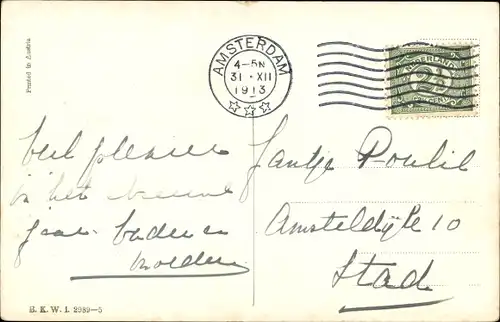 Printed in Austria
AMSTERDAM
4-5N
31·XII
1913
NEDERLAND
2½
Veel plezier
in het nieuwe
jaar
Jantje
Amsteldijk 10
Stad
B. K. W. I. 2989-5